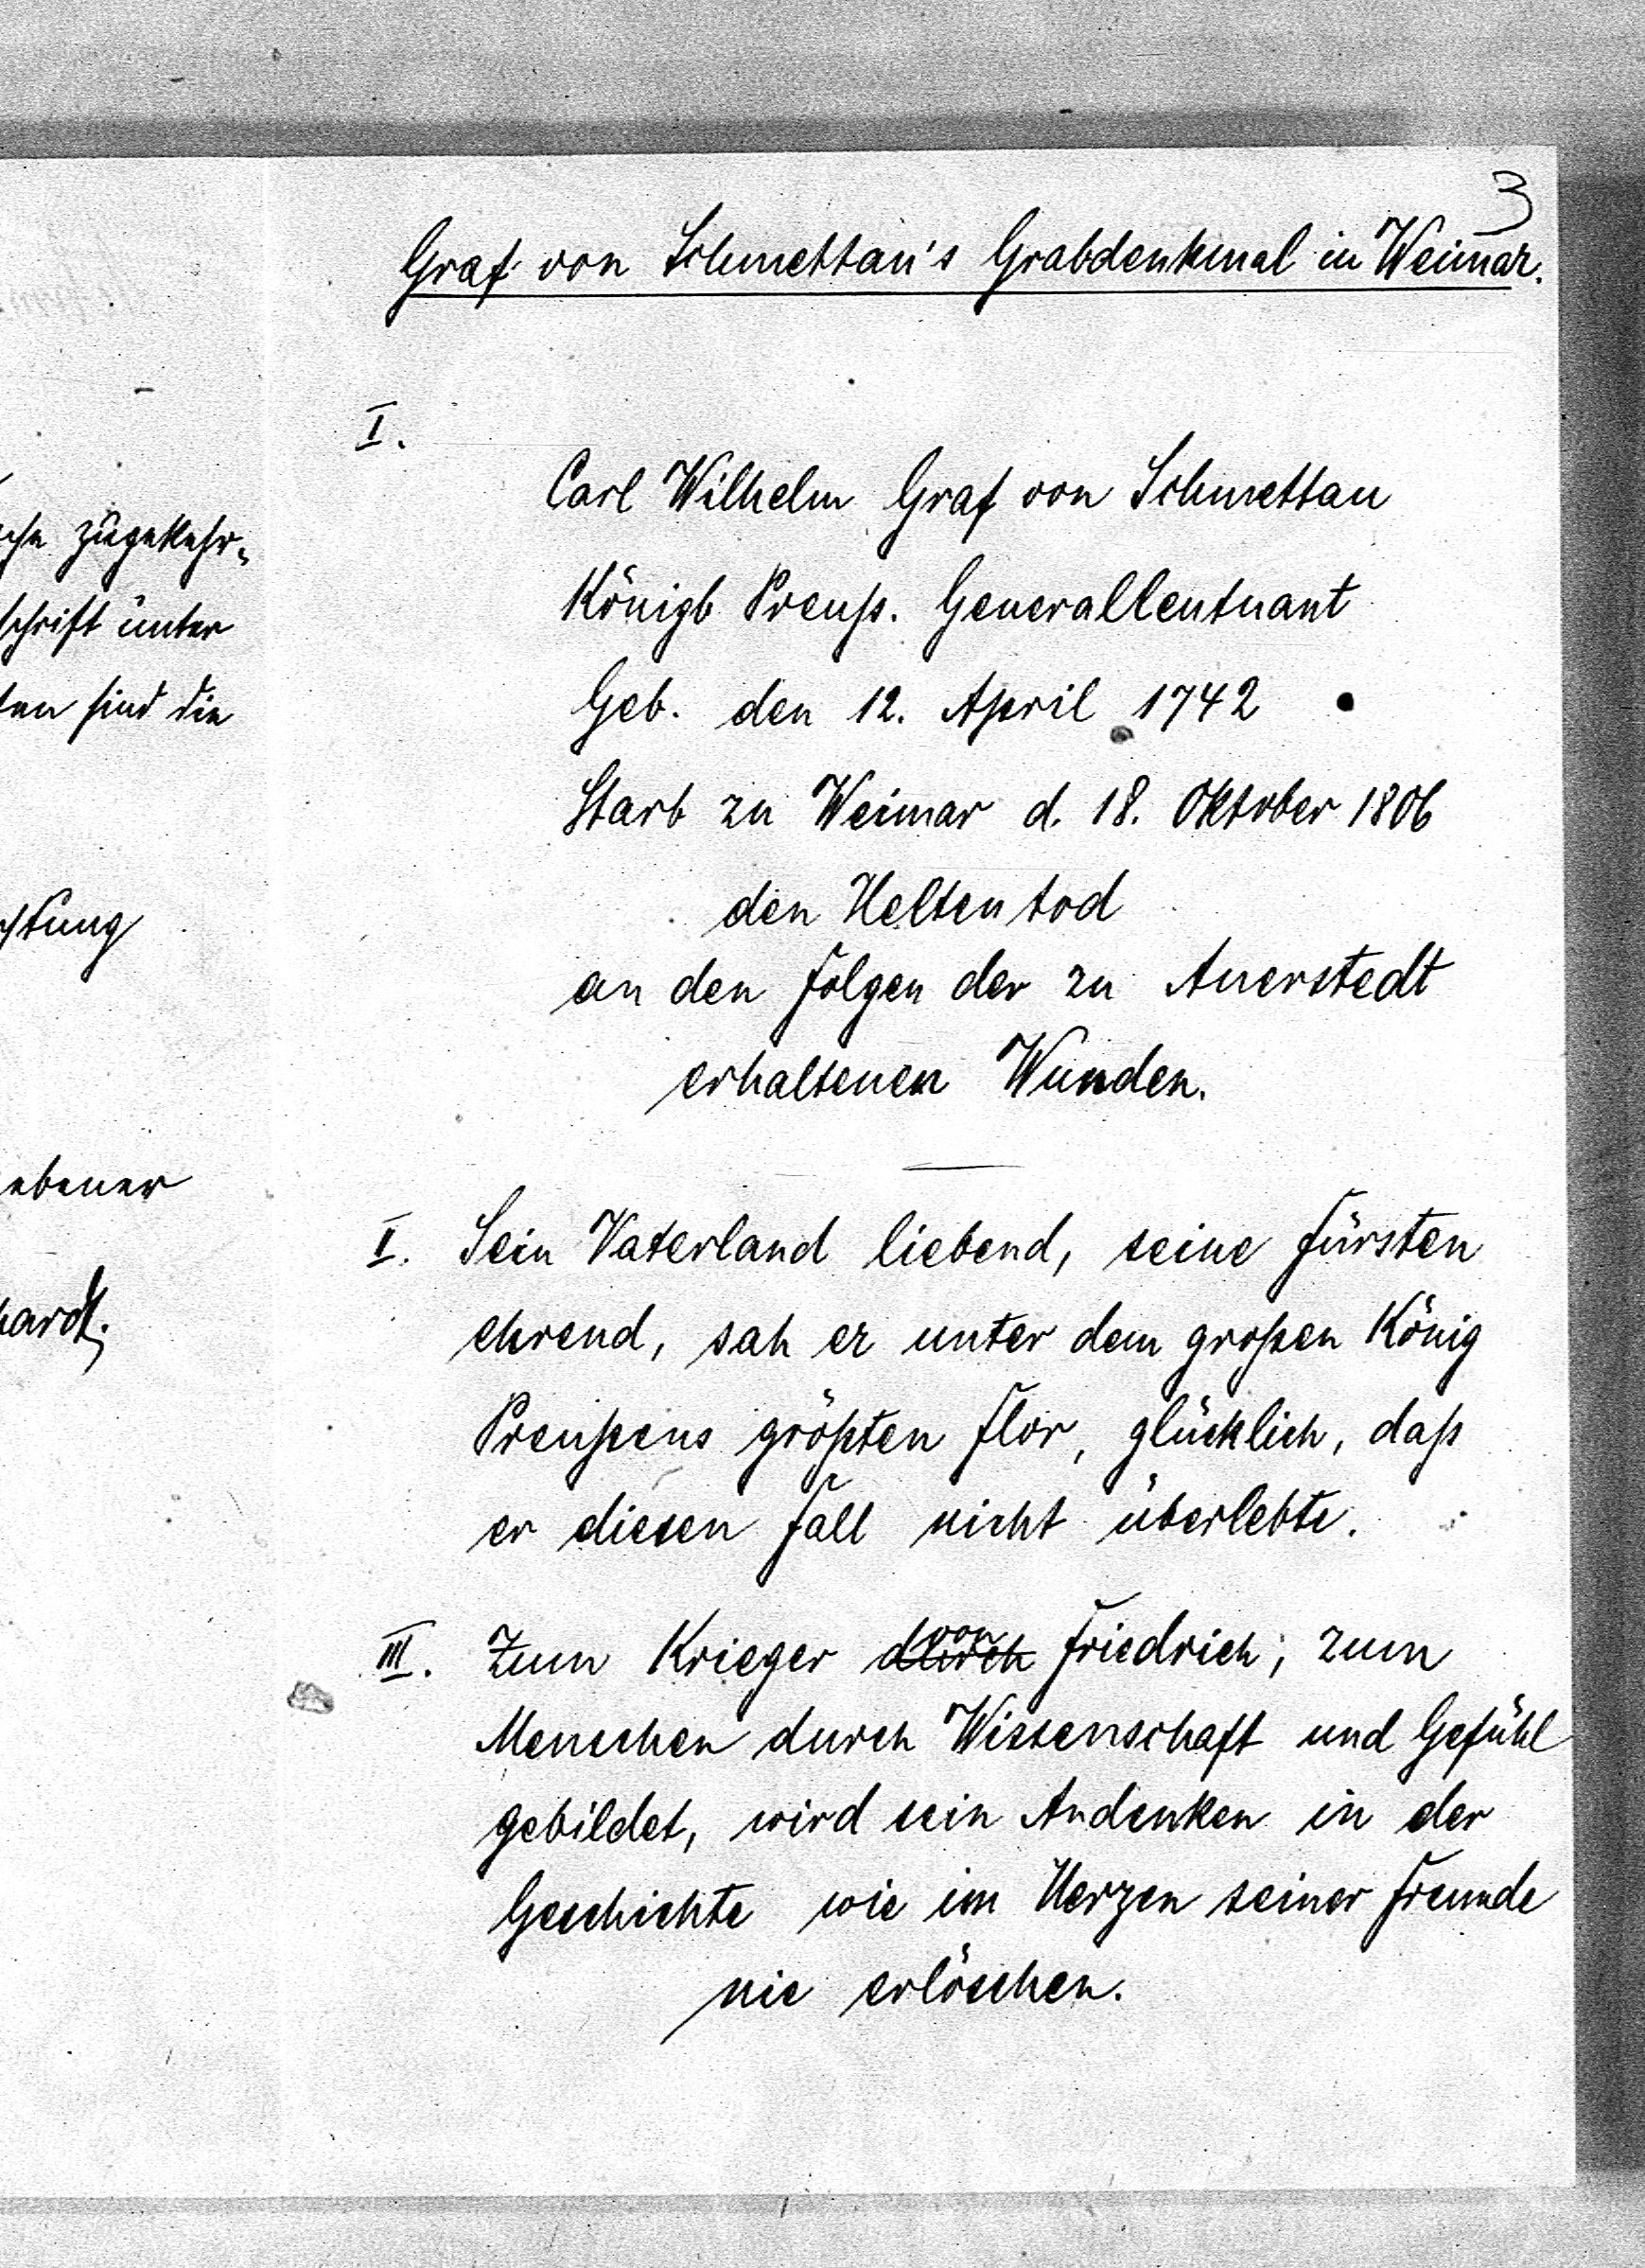 3
Graf von Schmettau's Grabdenkmal in Weimar.
I.
Carl Wilhelm Graf von Schmettau
Königl. Preuß. Generalleutnant
Geb. den 12. April 1742
Starb zu Weimar d. 18. Oktober 1806
den Heltentod
an den Folgen der zu Auerstedt
erhaltenen Wunden.
II. Sein Vaterland liebend, seine Fürsten
ehrend, sah er unter dem großen König
Preußens größten Flor, glücklich, daß
er diesen Fall nicht überlebte.
III. Zum Krieger durch von Friedrich, zum
Menschen durch Wissenschaft und Gefühl
gebildet, wird sein Andenken in der
Geschichte wie im Herzen seiner Freunde
nie erlöschen.
zugekehr-
schrift unter
ten sind die